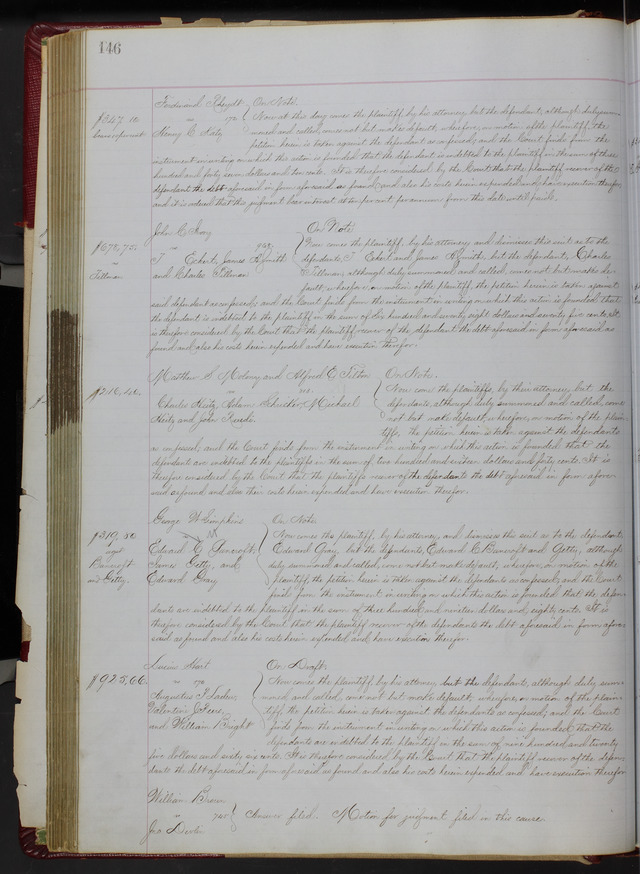 146
Ferdinand Rheydt } On Note.
$347.10 vs 172 } Now at this day comes the plaintiff, by his attorney, but the defendant, although duly sum-
Henry C. moned and called, comes not but makes default; wherefore, on motion of the plaintiff, the
petition herein is taken against the defendant as confessed; and the Court finds from the
instrument in writing on which this action is founded, that the defendant is indebted to the plaintiff in the sum of three
hundred and forty seven dollars and ten cents. It is therefore considered by the Court that the plaintiff recover of the
defendant the debt aforesaid in form aforesaid as found, and also his costs herein expended and have execution therefor,
and it is ordered that this judgment bear interest at ten per cent per annum from this date until paid.
John C. } On Note.
$678,75. vs } Now comes the plaintiff, by his attorney, and dismisses this suit as to the
T Eckert, James and defendants, T Eckert and James but the defendant, Charles
Tillman and Charles Tillman Tillman, although duly summoned and called, comes not but makes de-
fault; wherefore, on motion of the plaintiff, the petition herein is taken against
said defendant as confessed; and the Court finds from the instrument in writing on which this action is founded, that
the defendant is indebted to the plaintiff in the sum of six hundred and seventy eight dollars and seventy five cents. It
is therefore considered by the Court that the plaintiff recover of the defendant the debt aforesaid in form aforesaid as
found and also his costs herein expended and have execution therefor.
Matthew S. and Alfred E Tilton } On Note.
$216,40. vs } Now come the plaintiffs, by their attorney, but the
Charles Adam Michael defendants, although duly summoned and called, come
and John not but make default; wherefore, on motion of the plain-
tiffs, the petition herein is taken against the defendants
as confessed, and the Court finds from the instrument in writing on which this action is founded that the
defendants are indebted to the plaintiffs in the sum of two hundred and sixteen dollars and forty cents. It is
therefore considered by the Court that the plaintiffs recover of the defendants the debt aforesaid in form afore-
said as found and also their costs herein expended and have execution therefor.
George W Simpkins } On Note
$319,80 vs } Now comes the plaintiff, by his attorney, and dismisses this suit as to the defendant
agst Edward C Bancroft, Edward Gray, but the defendants, Edward C Bancroft and Getty, although
Bancroft James Getty, and duly summoned and called, come not but make default; wherefore, on motion of the
and Getty. Edward Gray plaintiff, the petition herein is taken against the defendants as confessed; and the Court
finds from the instrument in writing on which this action is founded, that the defen-
dants are indebted to the plaintiff in the sum of three hundred and nineteen dollars and eighty cents. It is
therefore considered by the Court that the plaintiff recover of the defendants the debt aforesaid in form afore-
said as found and also his costs herein expended and have execution therefor.
Lucius Hart } On Draft.
$925,66. vs } Now comes the plaintiff, by his attorney, but the defendants, although duly sum-
Augustus F moned and called, come not but make default; wherefore, on motion of the plain-
Valentine tiff, the petition herein is taken against the defendants as confessed; and the Court
and William Bright finds from the instrument in writing on which this action is founded, that the
defendants are indebted to the plaintiff in the sum of nine hundred and twenty
five dollars and sixty six cents. It is therefore considered by the Court that the plaintiff recover of the defen-
dants the debt aforesaid in form aforesaid as found and also his costs herein expended and have execution therefor.
William Brown
vs 740 } Answer filed. Motion for judgment filed in this cause.
Jno Devlin